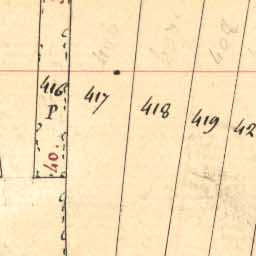 408
416 417 418 419 42
P
40.